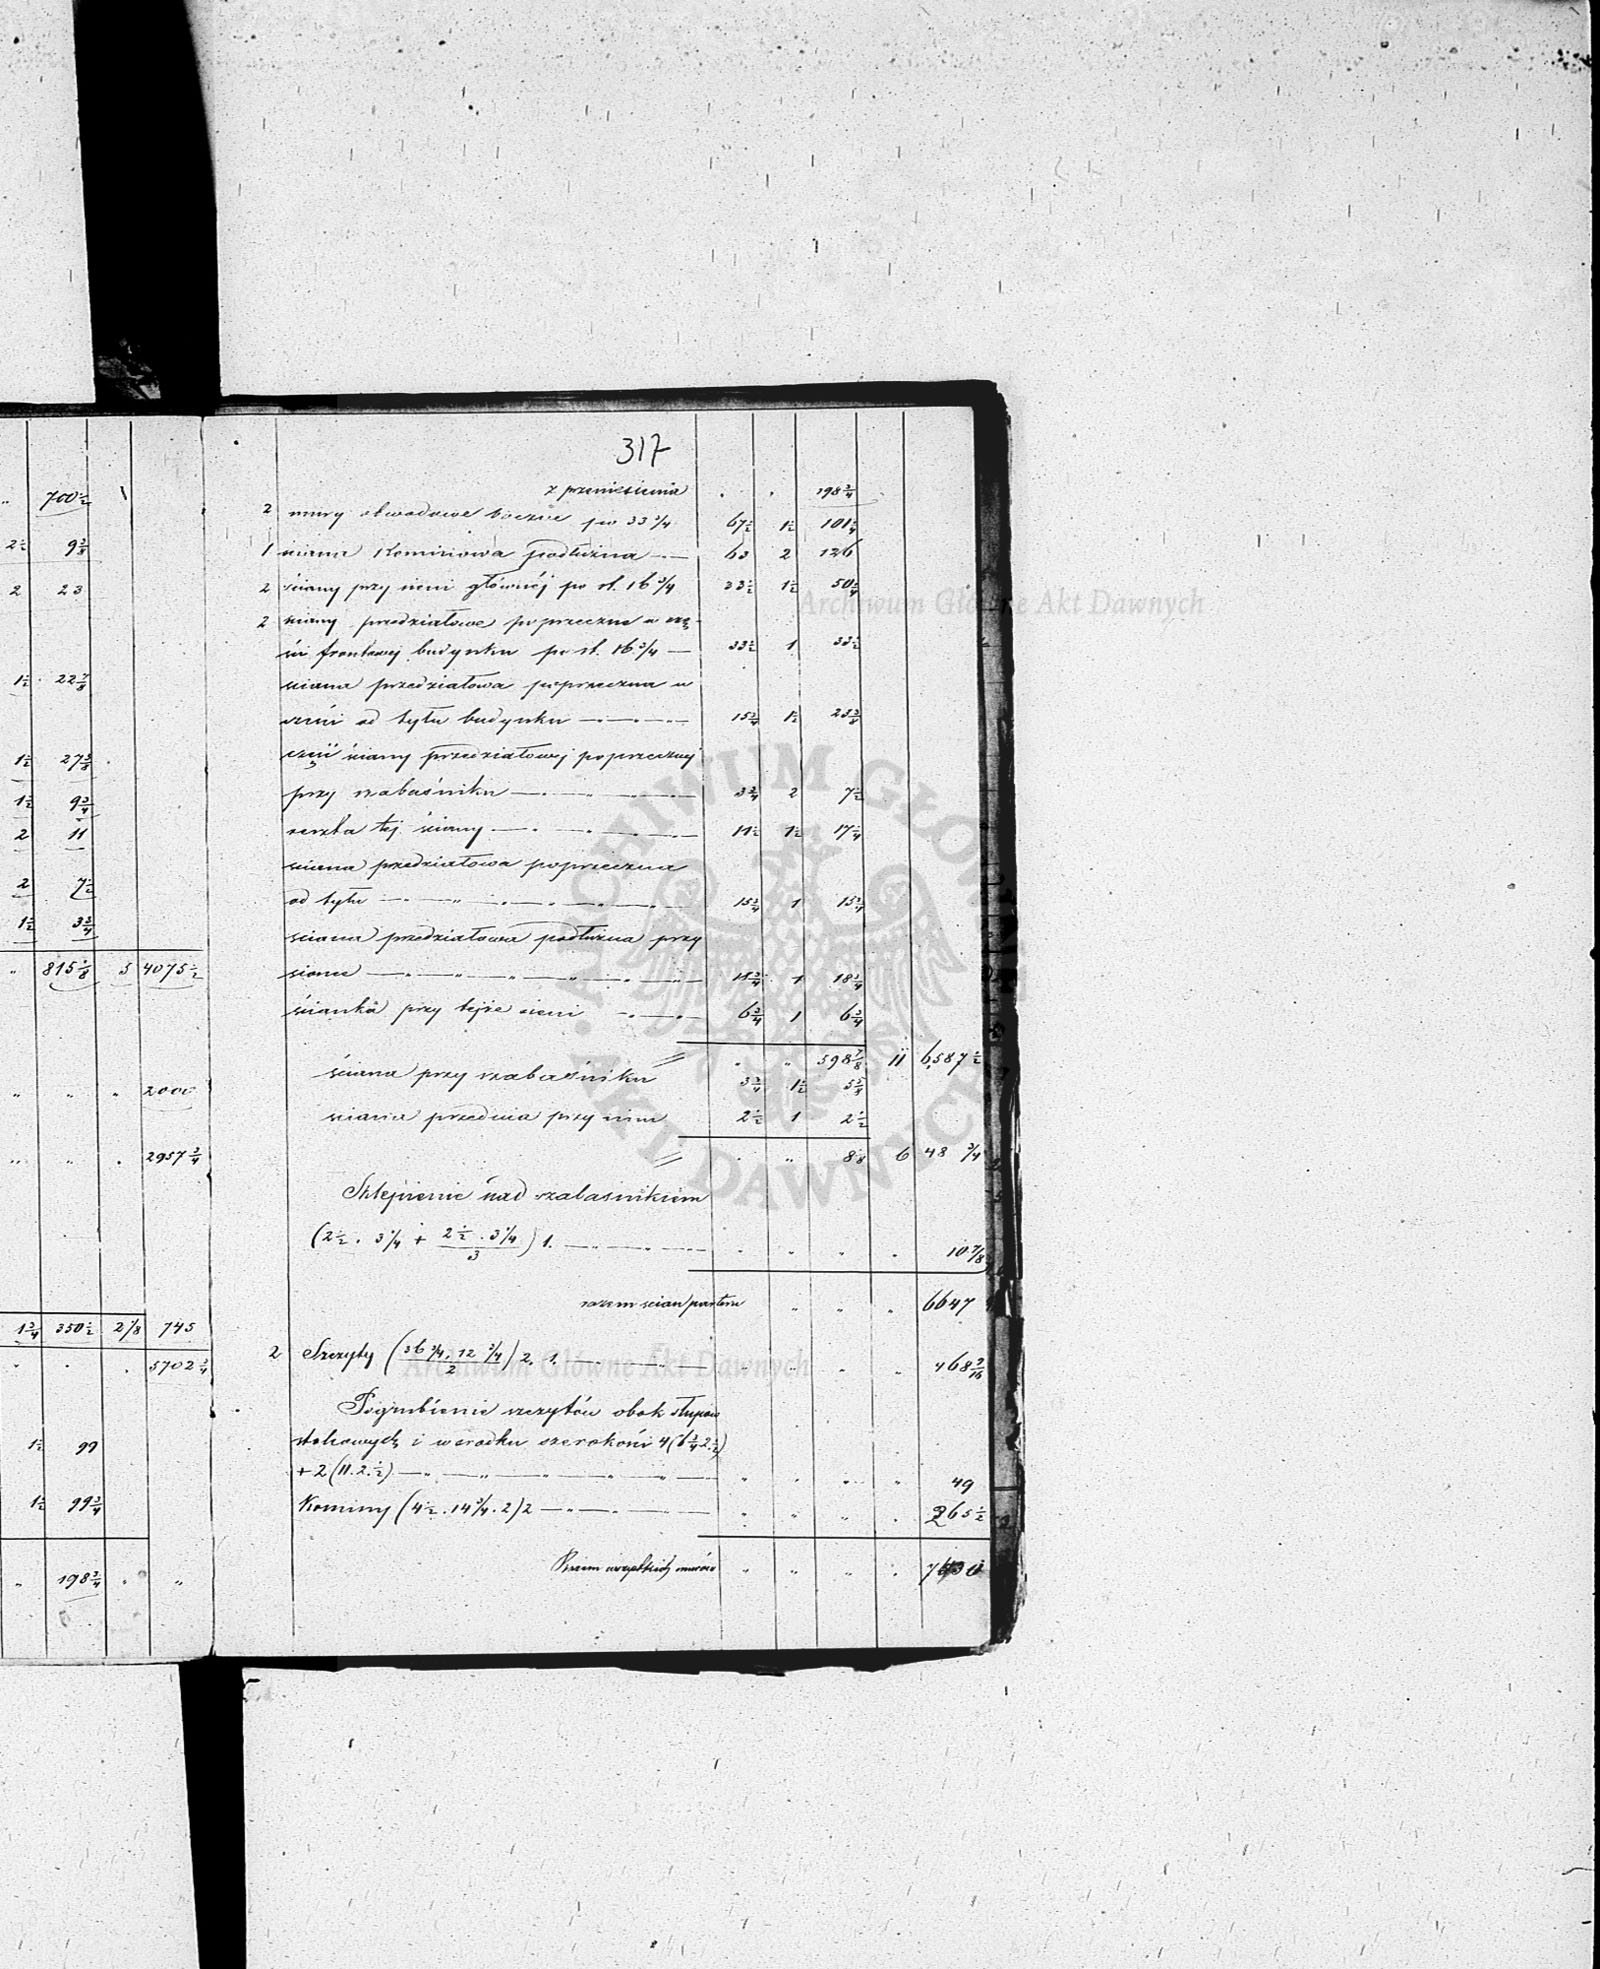 „ 700 1/2 \
2 1/2 9 3/8
2 23
1 1/2 22 7/8
1 1/2 27 3/8
1 1/2 9 3/4
2 11
2 7 1/2
1 1/2 3 3/4
„ 815 1/8 5 4075 1/2
„ „ „ 2000
„ „ . 2957 3/4
1 3/4 350 1/2 2 1/8 745
„ . . 5702 3/4
1 1/2 99
1 1/2 99 3/4
„ 198 3/4 „ „
317
z przeniesienia „ „ 198 3/4
2 mury obwodowe boczne po 33 3/4 67 1/2 1 1/2 101 1/4
1 ściana Kominowa podłużna — „ — 63 2 126
2 ściany przy sieni głównéj po st. 16 3/4 33 1/2 1 1/2 50 1/4
2 ściany przedziałowe poprzeczne w czę-
ści frontowej budynku po st. 16 3/4 — 33 1/2 1 33 1/2
ściana przedziałowa poprzeczna w
części od tyłu budynku — „ — „ — 15 3/4 1 1/2 23 5/8
część ściany przedziałowej poprzecznej
przy szabaśniku — „ — „ — „ — 3 3/4 2 7 1/2
reszta tej ściany — „ — „ — „ — 11 1/2 1 1/2 17 1/4
ściana przedziałowa poprzeczna
od tyłu — „ — „ — „ — „ — 15 3/4 1 15 3/4
ściana przedziałowa podłużna przy
sionce — „ — „ — „ — „ — 18 3/4 1 18 3/4
ścianka przy tejże sieni — „ — 6 3/4 1 6 3/4
„ „ 598 7/8 11 6587 1/2
ściana przy szabaśniku 3 3/4 1 1/2 5 5/8
ściana przednia przy nim 2 1/2 1 2 1/2
„ „ 8 1/8 6 48 3/4
Sklepienie nad szabaśnikiem
(2 1/2 . 3 1/4 + 2 1/2 . 3 1/4 / 3) 1. — „ — „ — „ „ „ „ 10 7/8
razem ścian parteru „ „ „ 6647
2 Szczyty (36 3/4 . 12 3/4 / 2) 2, 1. — „ — „ „ 468 9/16
Pogrubienie szczytów obok słupów
stolcowych i w środku szerokości 4 (6 3/4 2 1/2)
+ 2 (11. 2. 1/2) — „ — „ — „ — „ „ „ „ 49
Kominy (4 1/2 . 14 3/4 . 2) 2 — „ — „ — „ „ „ „ 265 1/2
Razem wszystkich murów „ „ „ „ 7430
Archiwum Główne Akt Dawnych
ARCHIWUM GŁÓWNE AKT DAWNYCH
Archiwum Główne Akt Dawnych